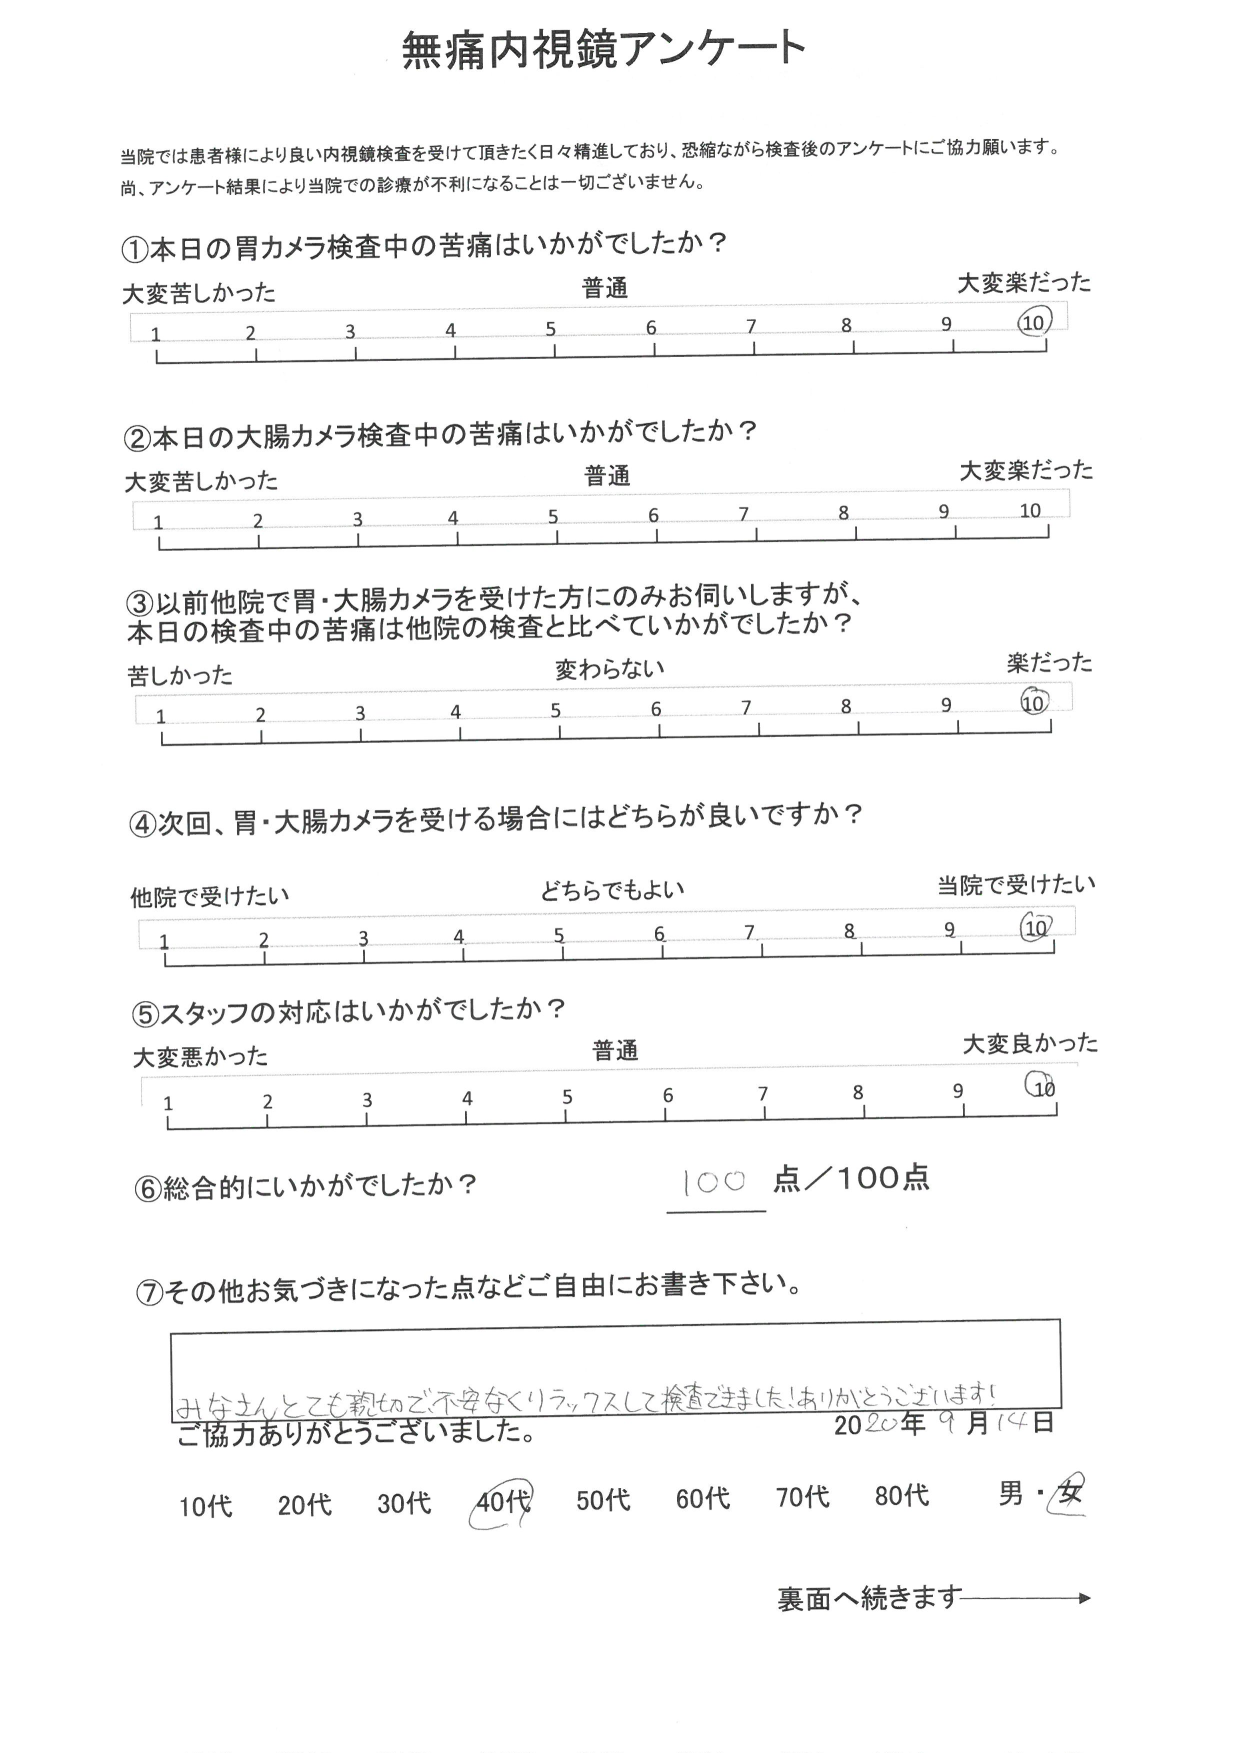 無痛内視鏡アンケート
当院では患者様により良い内視鏡検査を受けて頂きたく日々精進しており、恐縮ながら検査後のアンケートにご協力願います。
尚、アンケート結果により当院での診療が不利になることは一切ございません。
①本日の胃カメラ検査中の苦痛はいかがでしたか？
大変苦しかった 普通 大変楽だった
1 2 3 4 5 6 7 8 9 10
②本日の大腸カメラ検査中の苦痛はいかがでしたか？
大変苦しかった 普通 大変楽だった
1 2 3 4 5 6 7 8 9 10
③以前他院で胃・大腸カメラを受けた方にのみお伺いしますが、
本日の検査中の苦痛は他院の検査と比べていかがでしたか？
苦しかった 変わらない 楽だった
1 2 3 4 5 6 7 8 9 10
④次回、胃・大腸カメラを受ける場合にはどちらが良いですか？
他院で受けたい どちらでもよい 当院で受けたい
1 2 3 4 5 6 7 8 9 10
⑤スタッフの対応はいかがでしたか？
大変悪かった 普通 大変良かった
1 2 3 4 5 6 7 8 9 10
⑥総合的にいかがでしたか？ 100 点／100点
⑦その他お気づきになった点などご自由にお書き下さい。
みなさんとても親切で、不安なくリラックスして検査できました！ありがとうございます！
ご協力ありがとうございました。 2020年 9月14日
10代 20代 30代 40代 50代 60代 70代 80代 男・女
裏面へ続きます